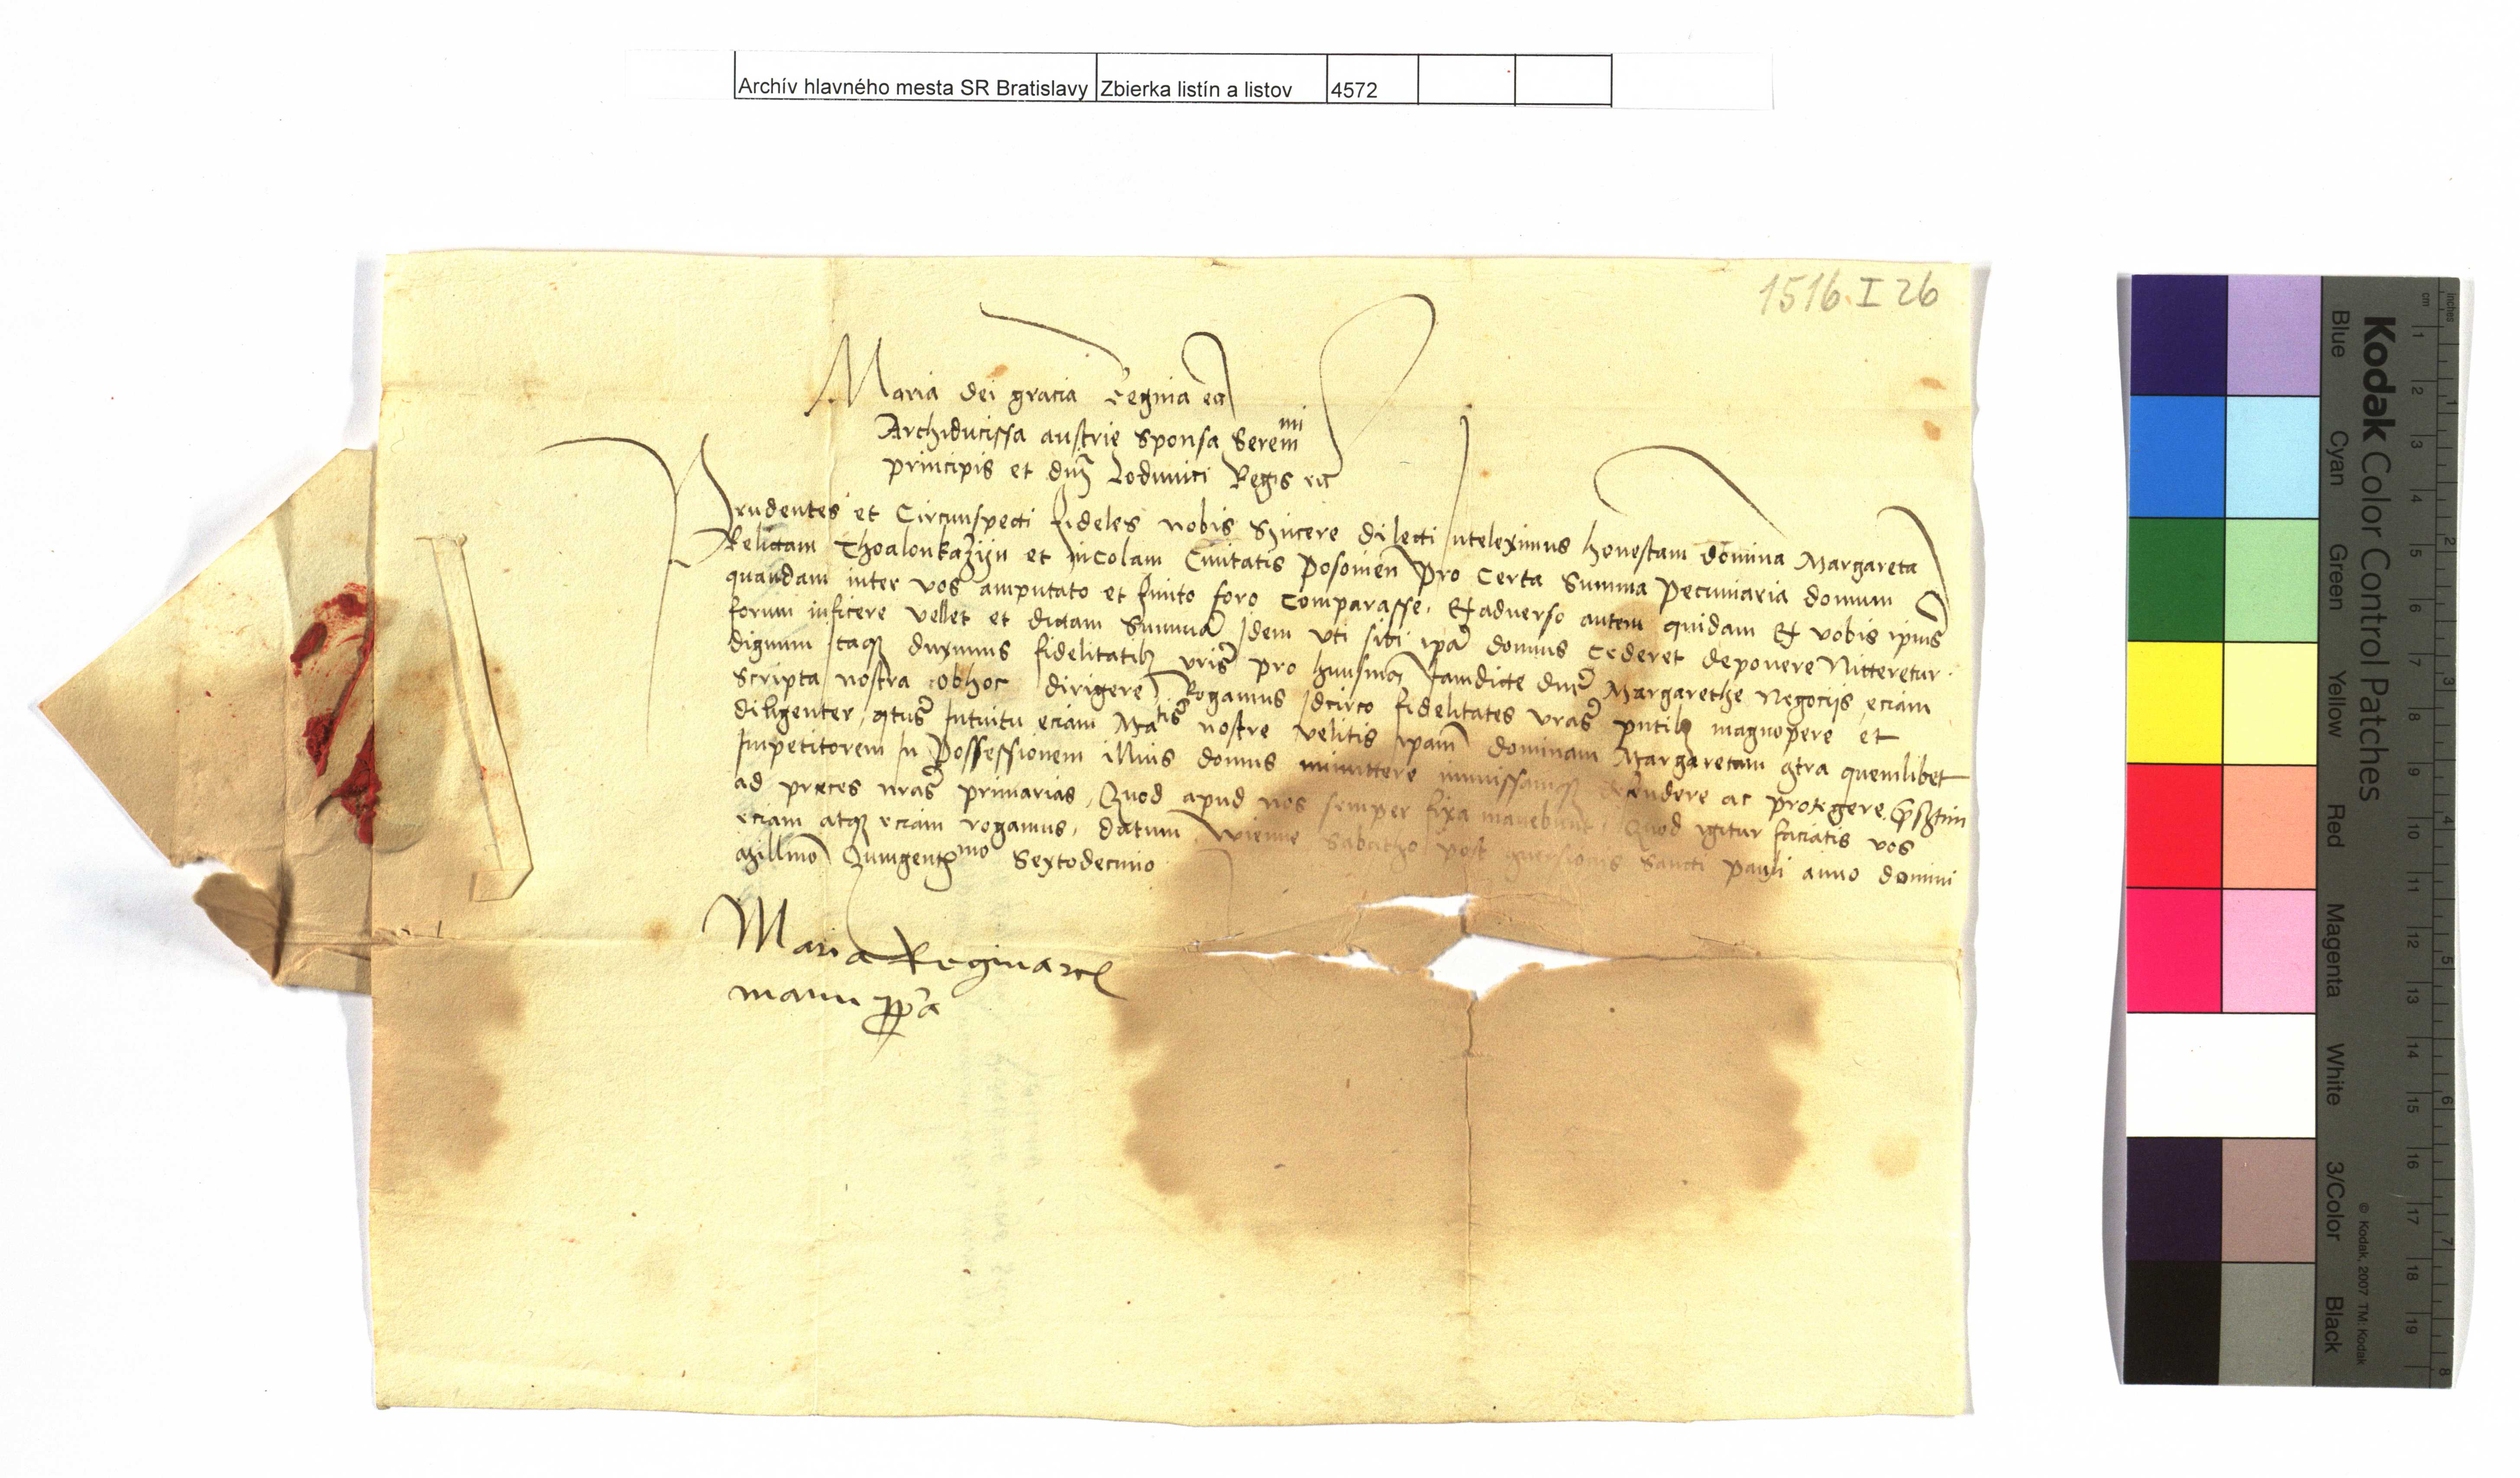 Archív hlavného mesta SR Bratislavy Zbierka listín a listov 4572
1516 I 26
Maria dei gracia Regina etc
Archiducissa austrie Sponsa Seremmi
principis et dnj Lodouici Regis etc
Prudentes et Circumspecti fideles nobis Syncere dilecti Inteleximus honestam domina Margareta
Relictam et incolam Ciuitatis Posonien pro Certa Summa Pecuniaria domum
quandam inter vos amputato et finito foro Comparasse, Ex aduerso autem quidam Ex vobis ipius
forum inficere vellet et dictam Summa Idem vti sibi ipa domus Cederet deponere Nitteretur
dignum itaq duximus fidelitatib vris pro huiusmoi Iamdicte dne Margarethe Negocijs eciam
Scripta nostra obhoc dirigere Rogamus Idcirco fidelitates vras pntib magnopere et
diligenter, qtus Intuitu eciam Matis nostre velitis ipam dominam Margaretam qtra quemlibet
Impetitorem In Possessionem illius domus immittere immissamq defendere ac protegere
ad preces nras primarias, Quod apud nos semper fixa manebunt, Quod igitur faciatis vos
eciam atq eciam rogamus, datum Wienne Sabatho post quersionis Sancti Pauli anno domini
Millmo Quingentmo Sextodecimo
Maria Regina etc
manu ppa
Kodak Color Control Patches
Blue Cyan Green Yellow Red Magenta White 3/Color Black
© Kodak, 2007 TM: Kodak
inches 1 2 3 4 5 6 7 8
cm 1 2 3 4 5 6 7 8 9 10 11 12 13 14 15 16 17 18 19